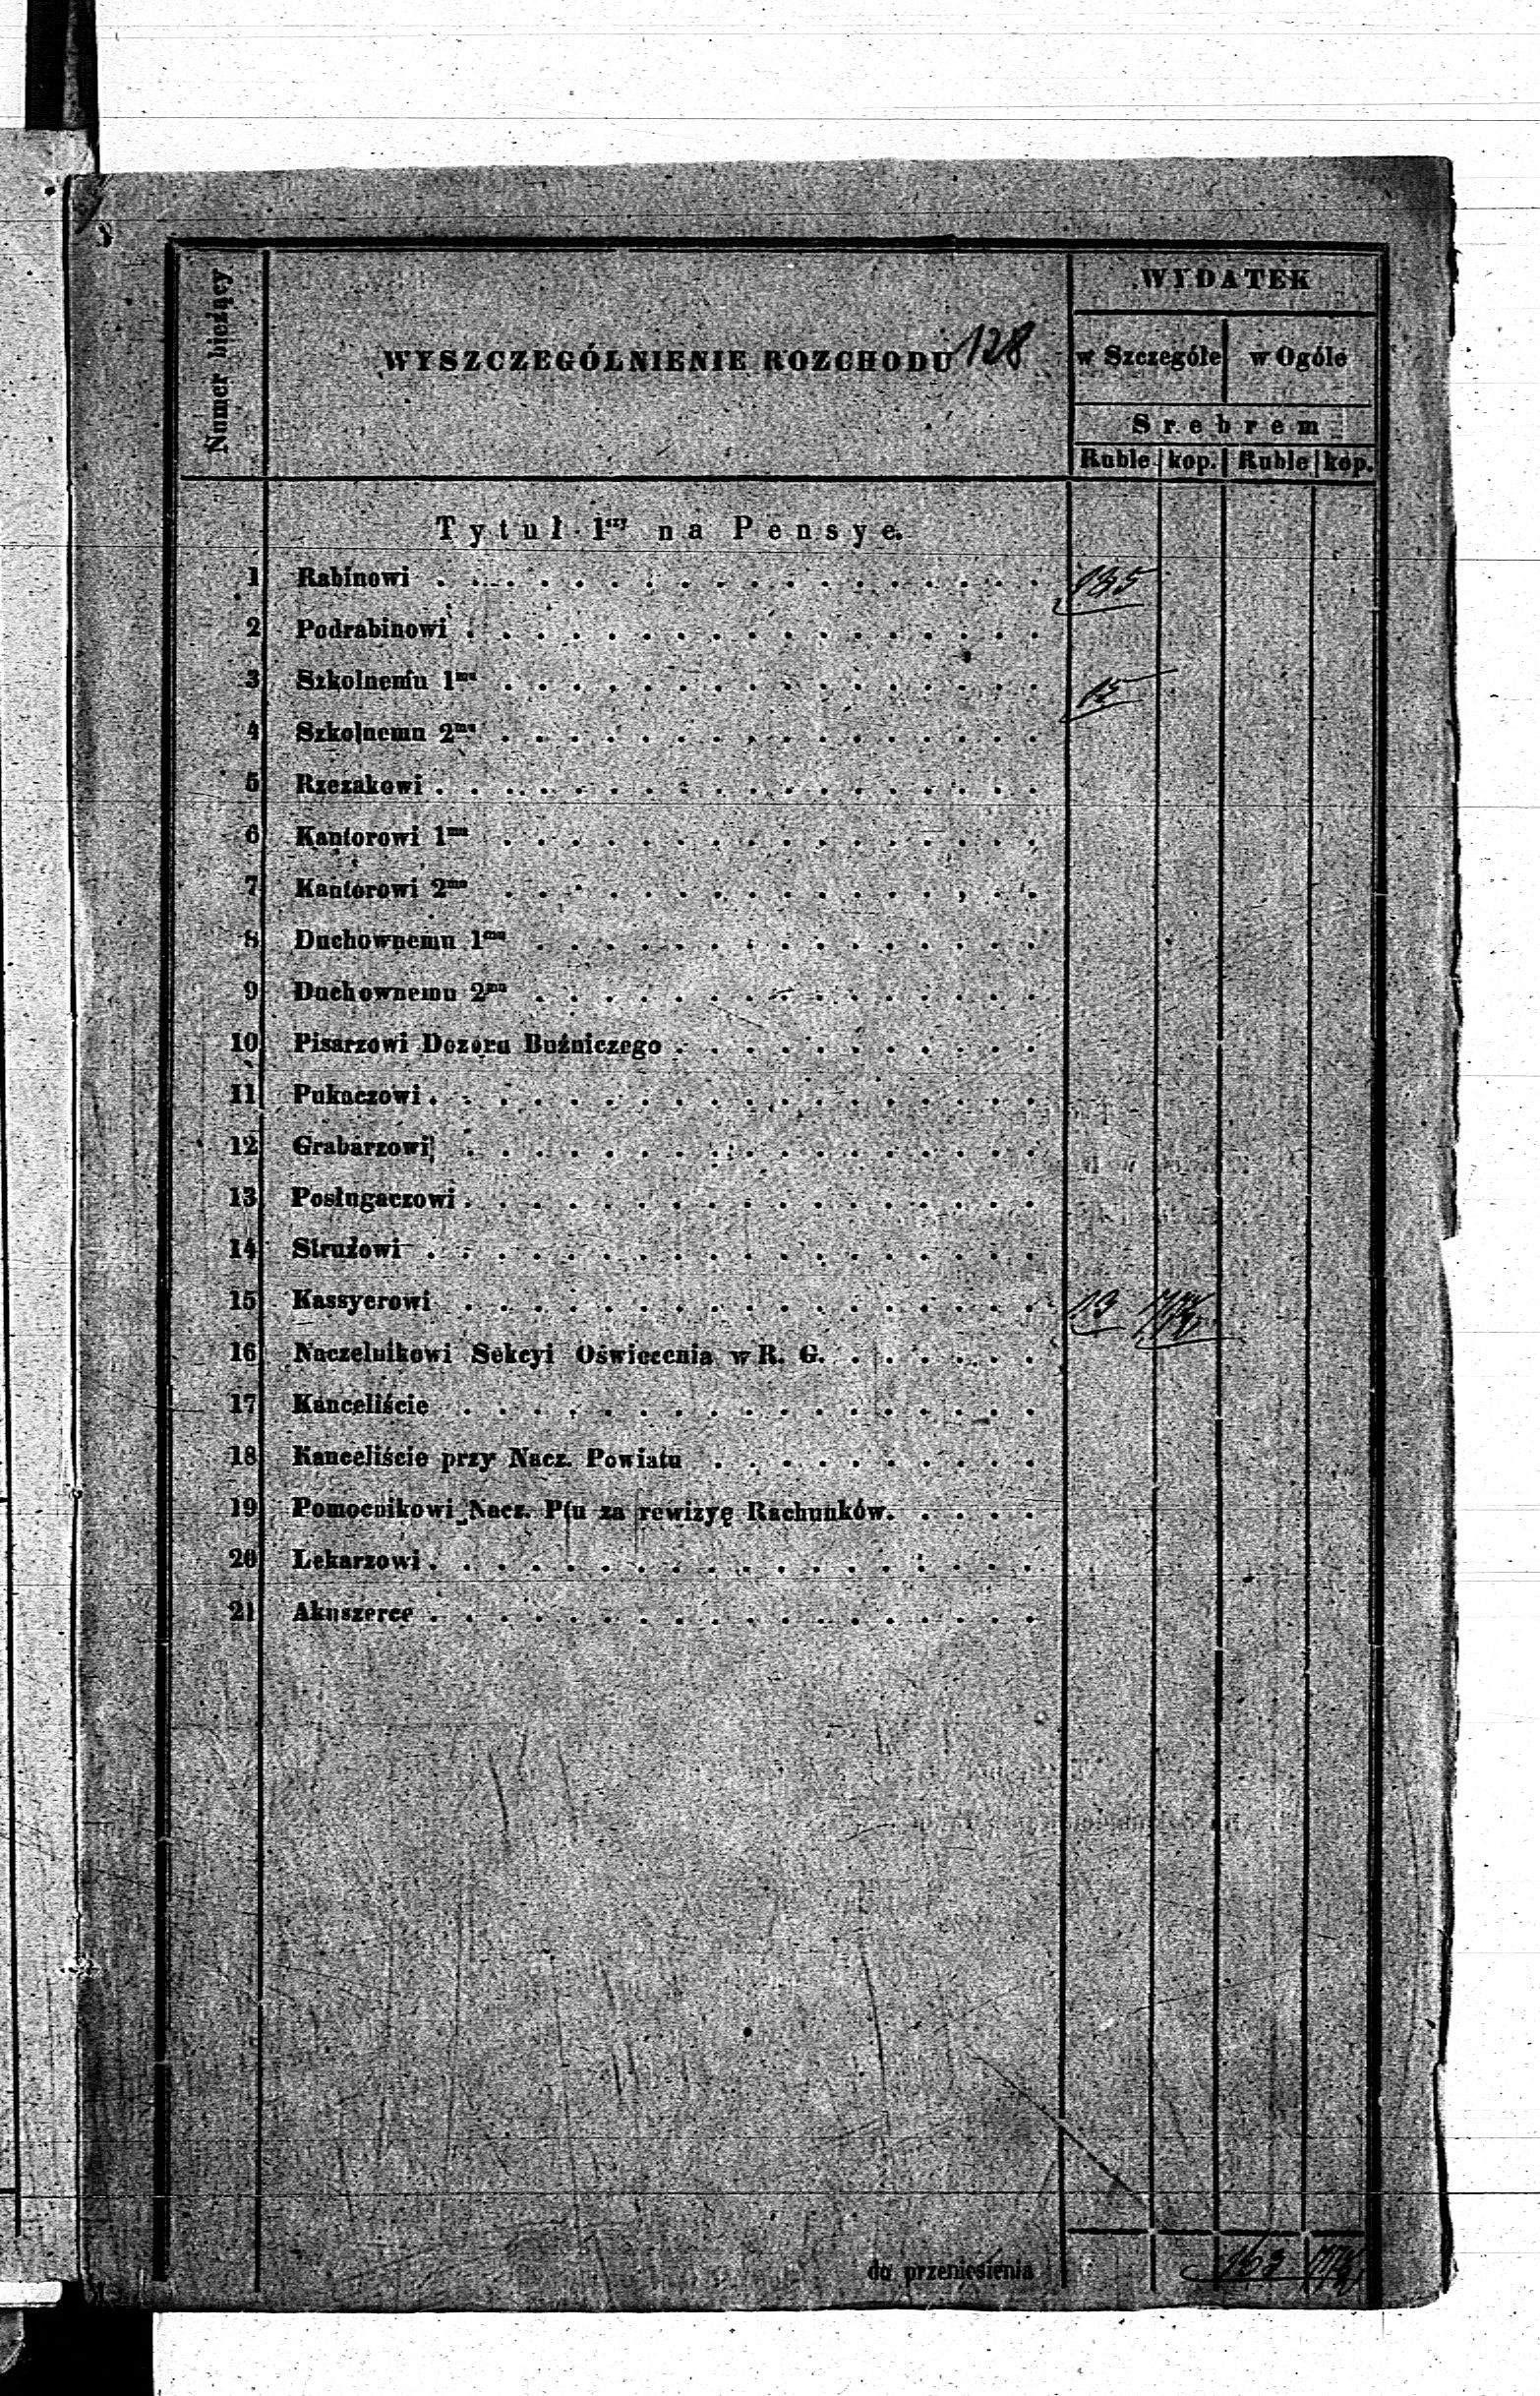 Numer bieżący
WYSZCZEGÓLNIENIE ROZCHODU 128
WYDATEK
w Szczególe w Ogóle
Srebrem
Ruble kop. Ruble kop.
Tytuł 1szy na Pensye.
1 Rabinowi 135
2 Podrabinowi
3 Szkolnemu 1mu 15
4 Szkolnemu 2mu
5 Rzezakowi
6 Kantorowi 1mu
7 Kantorowi 2mu
8 Duchownemu 1mu
9 Duchownemu 2mu
10 Pisarzowi Dozoru Buźniczego
11 Pukaczowi
12 Grabarzowi
13 Posługaczowi
14 Strużowi
15 Kassyerowi 13
16 Naczelnikowi Sekcyi Oświecenia w R. G.
17 Kanceliście
18 Kanceliście przy Nacz. Powiatu
19 Pomocnikowi Nacz. Ptu za rewizyę Rachunków.
20 Lekarzowi
21 Akuszerce
do przeniesienia 163